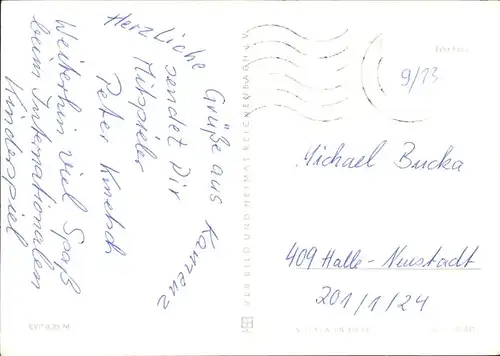 Herzliche Grüße aus Kamenz
sendet Dir
Mitspieler
Peter
Weiterhin viel Spaß
beim Internationalen
Kinderspiel
9/13
Michael Bucka
409 Halle-Neustadt
201/1/24
VEB BILD UND HEIMAT REICHENBACH i. V.